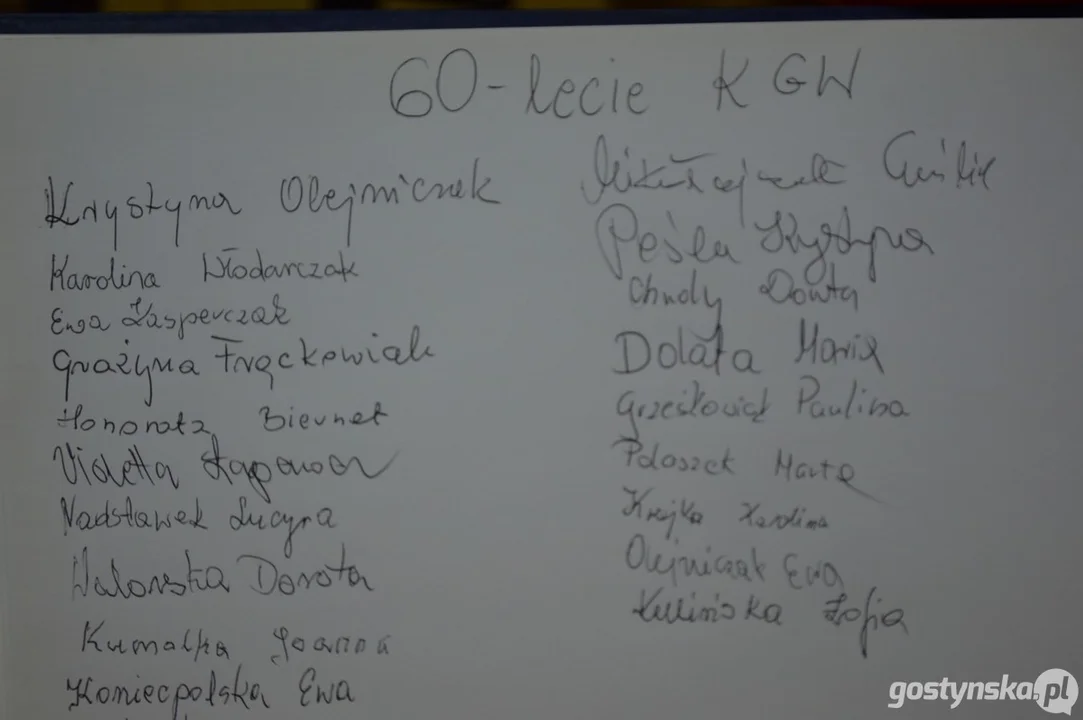 60-lecie KGW
Krystyna Olejniczak
Karolina Włodarczak
Ewa Kasperczak
Grażyna Frąckowiak
Honorata Biernet
Violetta
Nadstawek Lucyna
Walorska Dorota
Kumalka Joanna
Koniecpolska Ewa
Mikołajczak
Peśla Krystyna
Chudy Dorota
Dolata Maria
Grześkowiak Paulina
Polaszek Marta
Krejka Karolina
Olejniczak Ewa
Kulińska Zofia
gostynska.pl